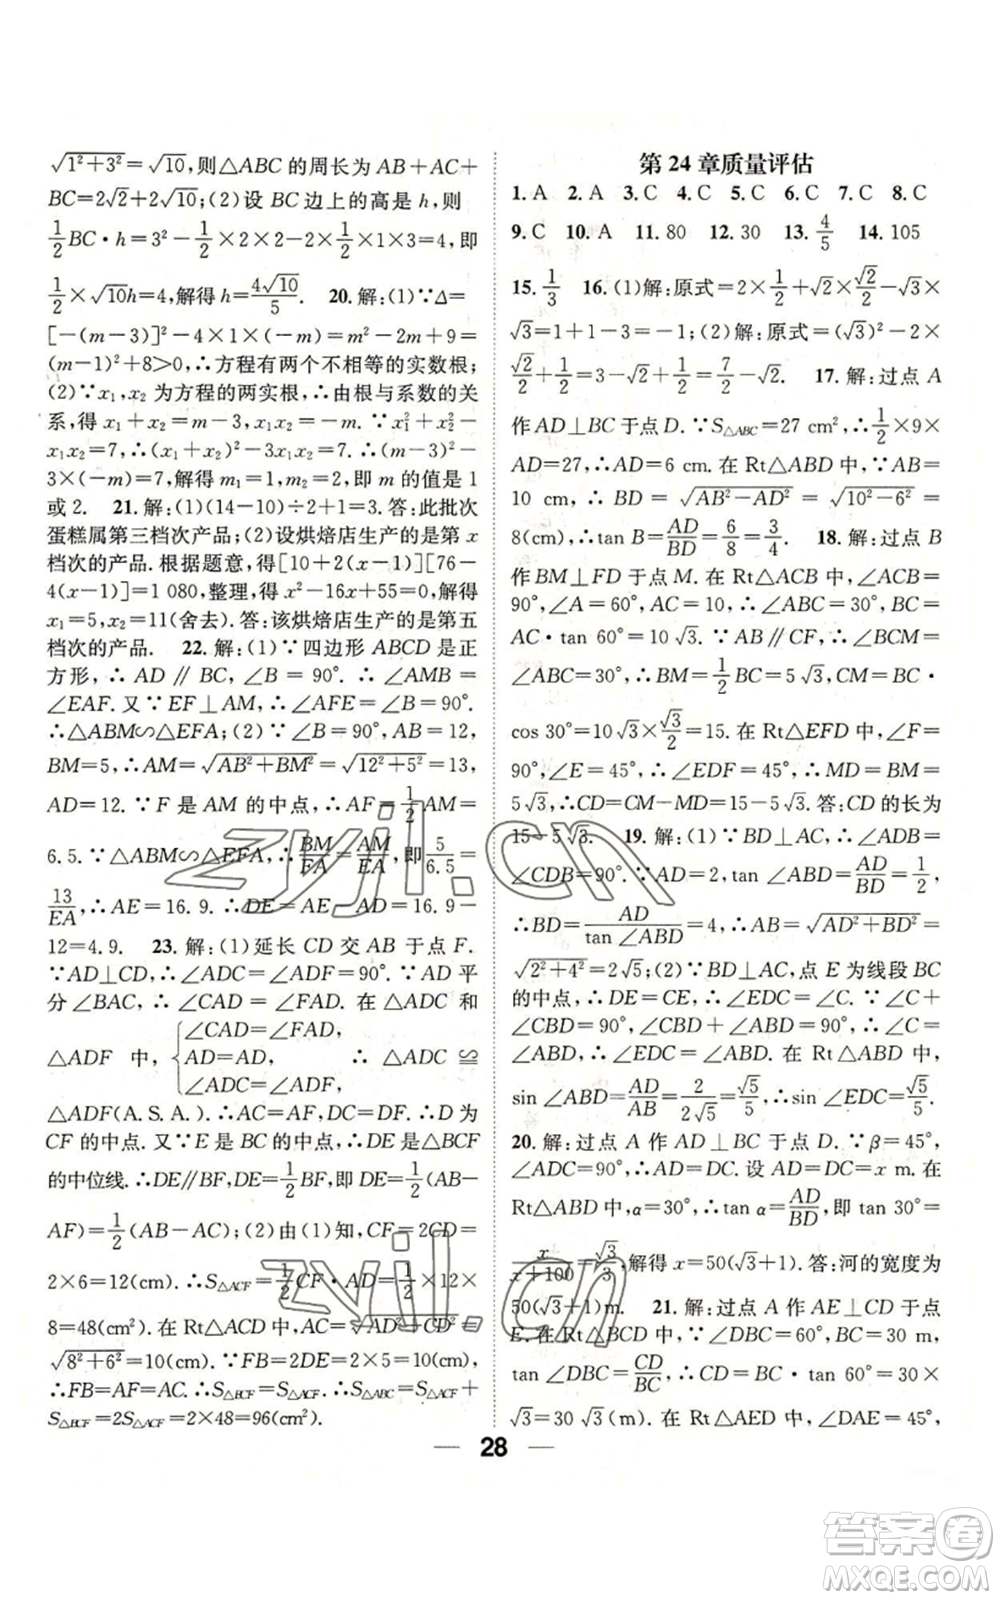 √(1²+3²)=√10,则△ABC 的周长为 AB+AC+
BC=2√2+2√10;(2)设 BC 边上的高是 h,则
1/2 BC·h=3²-1/2×2×2-1/2×1×3=4,即
1/2×√10h=4,解得 h=4√10/5. 20. 解:(1)∵Δ=
[-(m-3)]²-4×1×(-m)=m²-2m+9=
(m-1)²+8>0,∴方程有两个不相等的实数根;
(2)∵x₁,x₂ 为方程的两实根,∴由根与系数的关
系,得 x₁+x₂=m-3,x₁x₂=-m. ∵x₁²+x₂²-
x₁x₂=7,∴(x₁+x₂)²-3x₁x₂=7,即(m-3)²-
3×(-m)=7,解得 m₁=1,m₂=2,即 m 的值是 1
或2. 21. 解:(1)(14-10)÷2+1=3. 答:此批次
蛋糕属第三档次产品;(2)设烘焙店生产的是第 x
档次的产品. 根据题意,得[10+2(x-1)][76-
4(x-1)]=1 080,整理,得 x²-16x+55=0,解得
x₁=5,x₂=11(舍去). 答:该烘焙店生产的是第五
档次的产品. 22. 解:(1)∵四边形 ABCD 是正
方形,∴AD∥BC,∠B=90°. ∴∠AMB=
∠EAF. 又∵EF⊥AM,∴∠AFE=∠B=90°.
∴△ABM∽△EFA;(2)∵∠B=90°,AB=12,
BM=5,∴AM=√(AB²+BM²)=√(12²+5²)=13,
AD=12. ∵F 是 AM 的中点,∴AF=1/2 AM=
6.5. ∵△ABM∽△EFA,∴BM/FA=AM/EA,即5/6.5=
13/EA,∴AE=16.9. ∴DE=AE-AD=16.9-
12=4.9. 23. 解:(1)延长 CD 交 AB 于点 F.
∵AD⊥CD,∴∠ADC=∠ADF=90°. ∵AD 平
分∠BAC,∴∠CAD=∠FAD. 在△ADC 和
∠CAD=∠FAD,
△ADF 中,{AD=AD, ∴△ADC≌
∠ADC=∠ADF,
△ADF(A.S.A.). ∴AC=AF,DC=DF. ∴D 为
CF 的中点. 又∵E 是 BC 的中点,∴DE 是△BCF
的中位线. ∴DE∥BF,DE=1/2 BF,即 DE=1/2(AB-
AF)=1/2(AB-AC);(2)由(1)知,CF=2CD=
2×6=12(cm). ∴S△ACF=1/2 CF·AD=1/2×12×
8=48(cm²). 在 Rt△ACD 中,AC=√(AD²+CD²)=
√(8²+6²)=10(cm). ∵FB=2DE=2×5=10(cm).
∴FB=AF=AC. ∴S△BCF=S△ACF. ∴S△ABC=S△ACF+
S△BCF=2S△ACF=2×48=96(cm²).
第 24 章质量评估
1. A 2. A 3. C 4. C 5. C 6. C 7. C 8. C
9. C 10. A 11. 80 12. 30 13. 4/5 14. 105
15. 1/3 16. (1)解:原式=2×1/2+√2×√2/2-√3×
√3=1+1-3=-1;(2)解:原式=(√3)²-2×
√2/2+1/2=3-√2+1/2=7/2-√2. 17. 解:过点 A
作 AD⊥BC 于点 D. ∵S△ABC=27 cm²,∴1/2×9×
AD=27,∴AD=6 cm. 在 Rt△ABD 中,∵AB=
10 cm,∴BD=√(AB²-AD²)=√(10²-6²)=
8(cm),∴tan B=AD/BD=6/8=3/4. 18. 解:过点 B
作 BM⊥FD 于点 M. 在 Rt△ACB 中,∠ACB=
90°,∠A=60°,AC=10,∴∠ABC=30°,BC=
AC·tan 60°=10√3. ∵AB∥CF,∴∠BCM=
∠ABC=30°. ∴BM=1/2 BC=5√3,CM=BC·
cos 30°=10√3×√3/2=15. 在 Rt△EFD 中,∠F=
90°,∠E=45°,∴∠EDF=45°,∴MD=BM=
5√3. ∴CD=CM-MD=15-5√3. 答:CD 的长为
15-5√3. 19. 解:(1)∵BD⊥AC,∴∠ADB=
∠CDB=90°. ∵AD=2,tan∠ABD=AD/BD=1/2,
∴BD=AD/tan∠ABD=4,∴AB=√(AD²+BD²)=
√(2²+4²)=2√5;(2)∵BD⊥AC,点 E 为线段 BC
的中点,∴DE=CE,∴∠EDC=∠C. ∵∠C+
∠CBD=90°,∠CBD+∠ABD=90°,∴∠C=
∠ABD,∴∠EDC=∠ABD. 在 Rt△ADB 中,
sin∠ABD=AD/AB=2/2√5=√5/5,∴sin∠EDC=√5/5.
20. 解:过点 A 作 AD⊥BC 于点 D. ∵β=45°,
∠ADC=90°,∴AD=DC. 设 AD=DC=x m. 在
Rt△ABD 中,α=30°,∴tan α=AD/BD,即 tan 30°=
x/(x+100)=√3/3,解得 x=50(√3+1). 答:河的宽度为
50(√3+1)m. 21. 解:过点 A 作 AE⊥CD 于点
E. 在 Rt△BCD 中,∵∠DBC=60°,BC=30 m,
tan∠DBC=CD/BC,∴CD=BC·tan 60°=30×
√3=30√3(m). 在 Rt△AED 中,∠DAE=45°,
28
zyjl.cn
zyjl.cn
答案圈
MXQE.COM